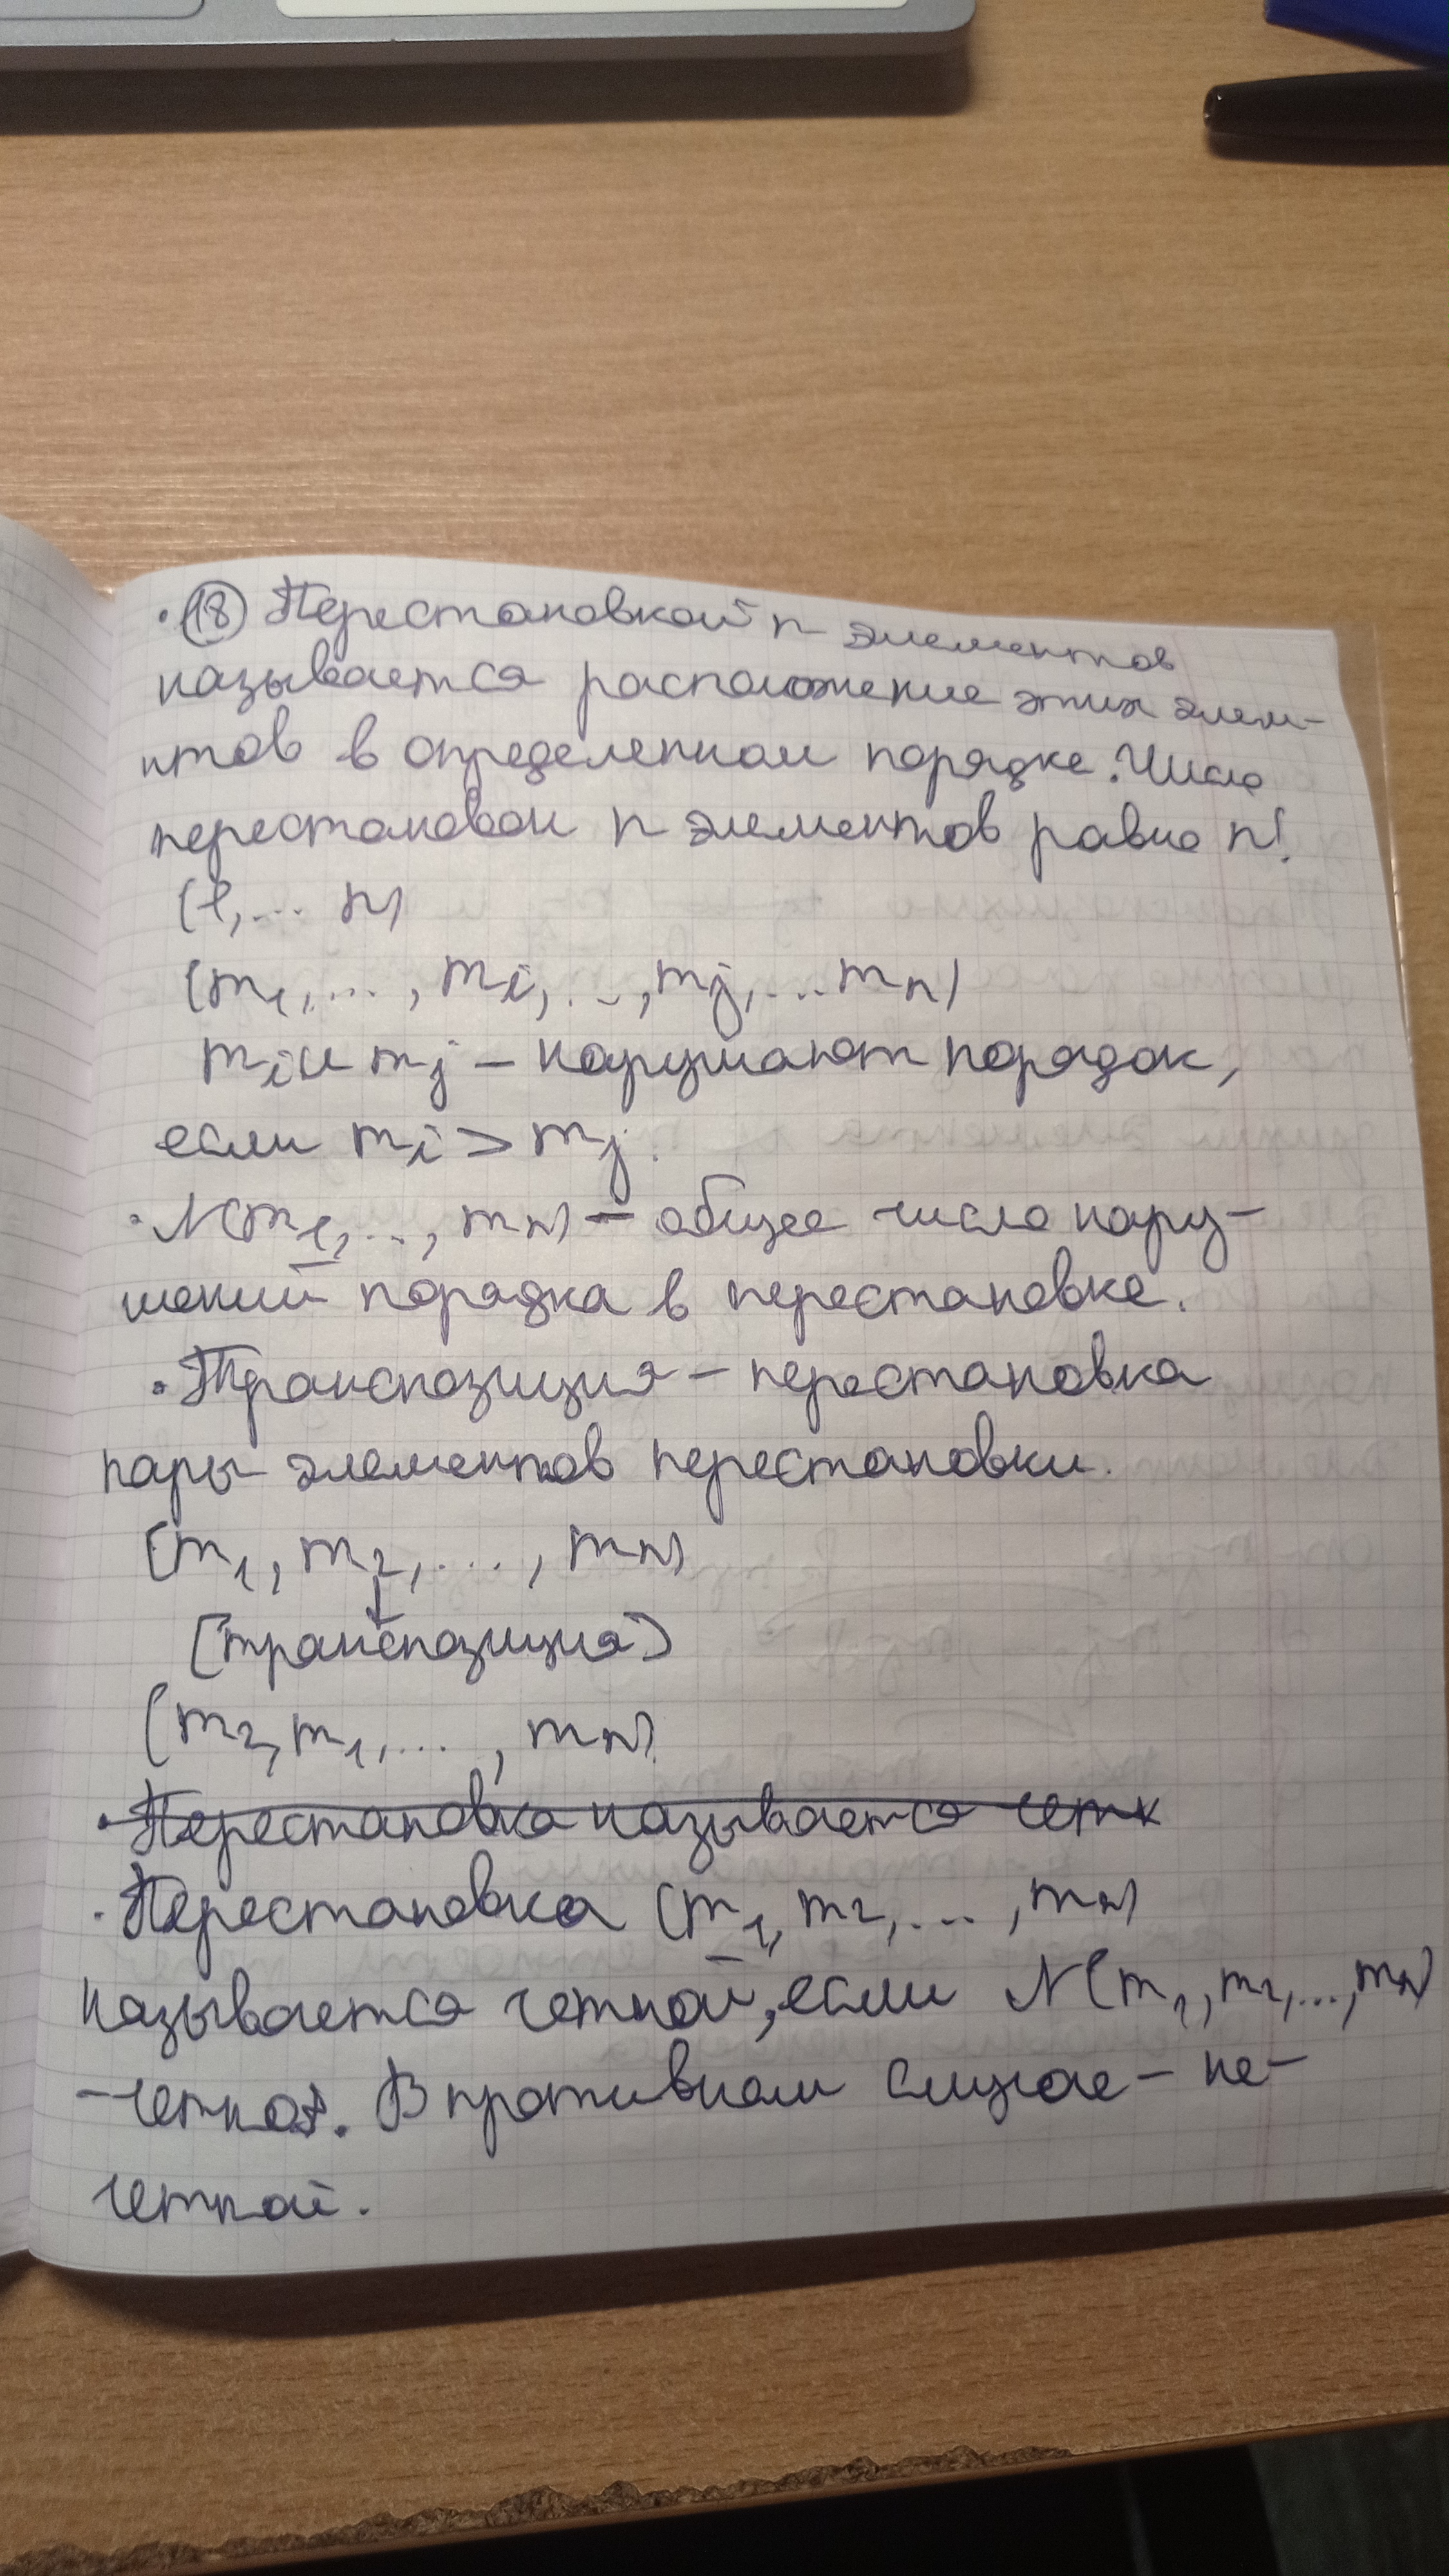 · (18) Перестановкой n элементов
называется расположение этих элем-
нтов в определенном порядке. Число
перестановок n элементов равно n!
(1,... n)
(m₁,..., mᵢ,...,mⱼ,...mₙ)
mᵢ и mⱼ – нарушают порядок,
если mᵢ > mⱼ.
· N(m₁,..., mₙ) – общее число нару-
шений порядка в перестановке.
· Транспозиция – перестановка
пары элементов перестановки.
(m₁, m₂,..., mₙ)
↓
(транспозиция)
(m₂, m₁,..., mₙ)
· Перестановка называется четн
· Перестановка (m₁, m₂,..., mₙ)
называется четной, если N(m₁, m₂,..., mₙ)
– четное. В противном случае – не-
четной.